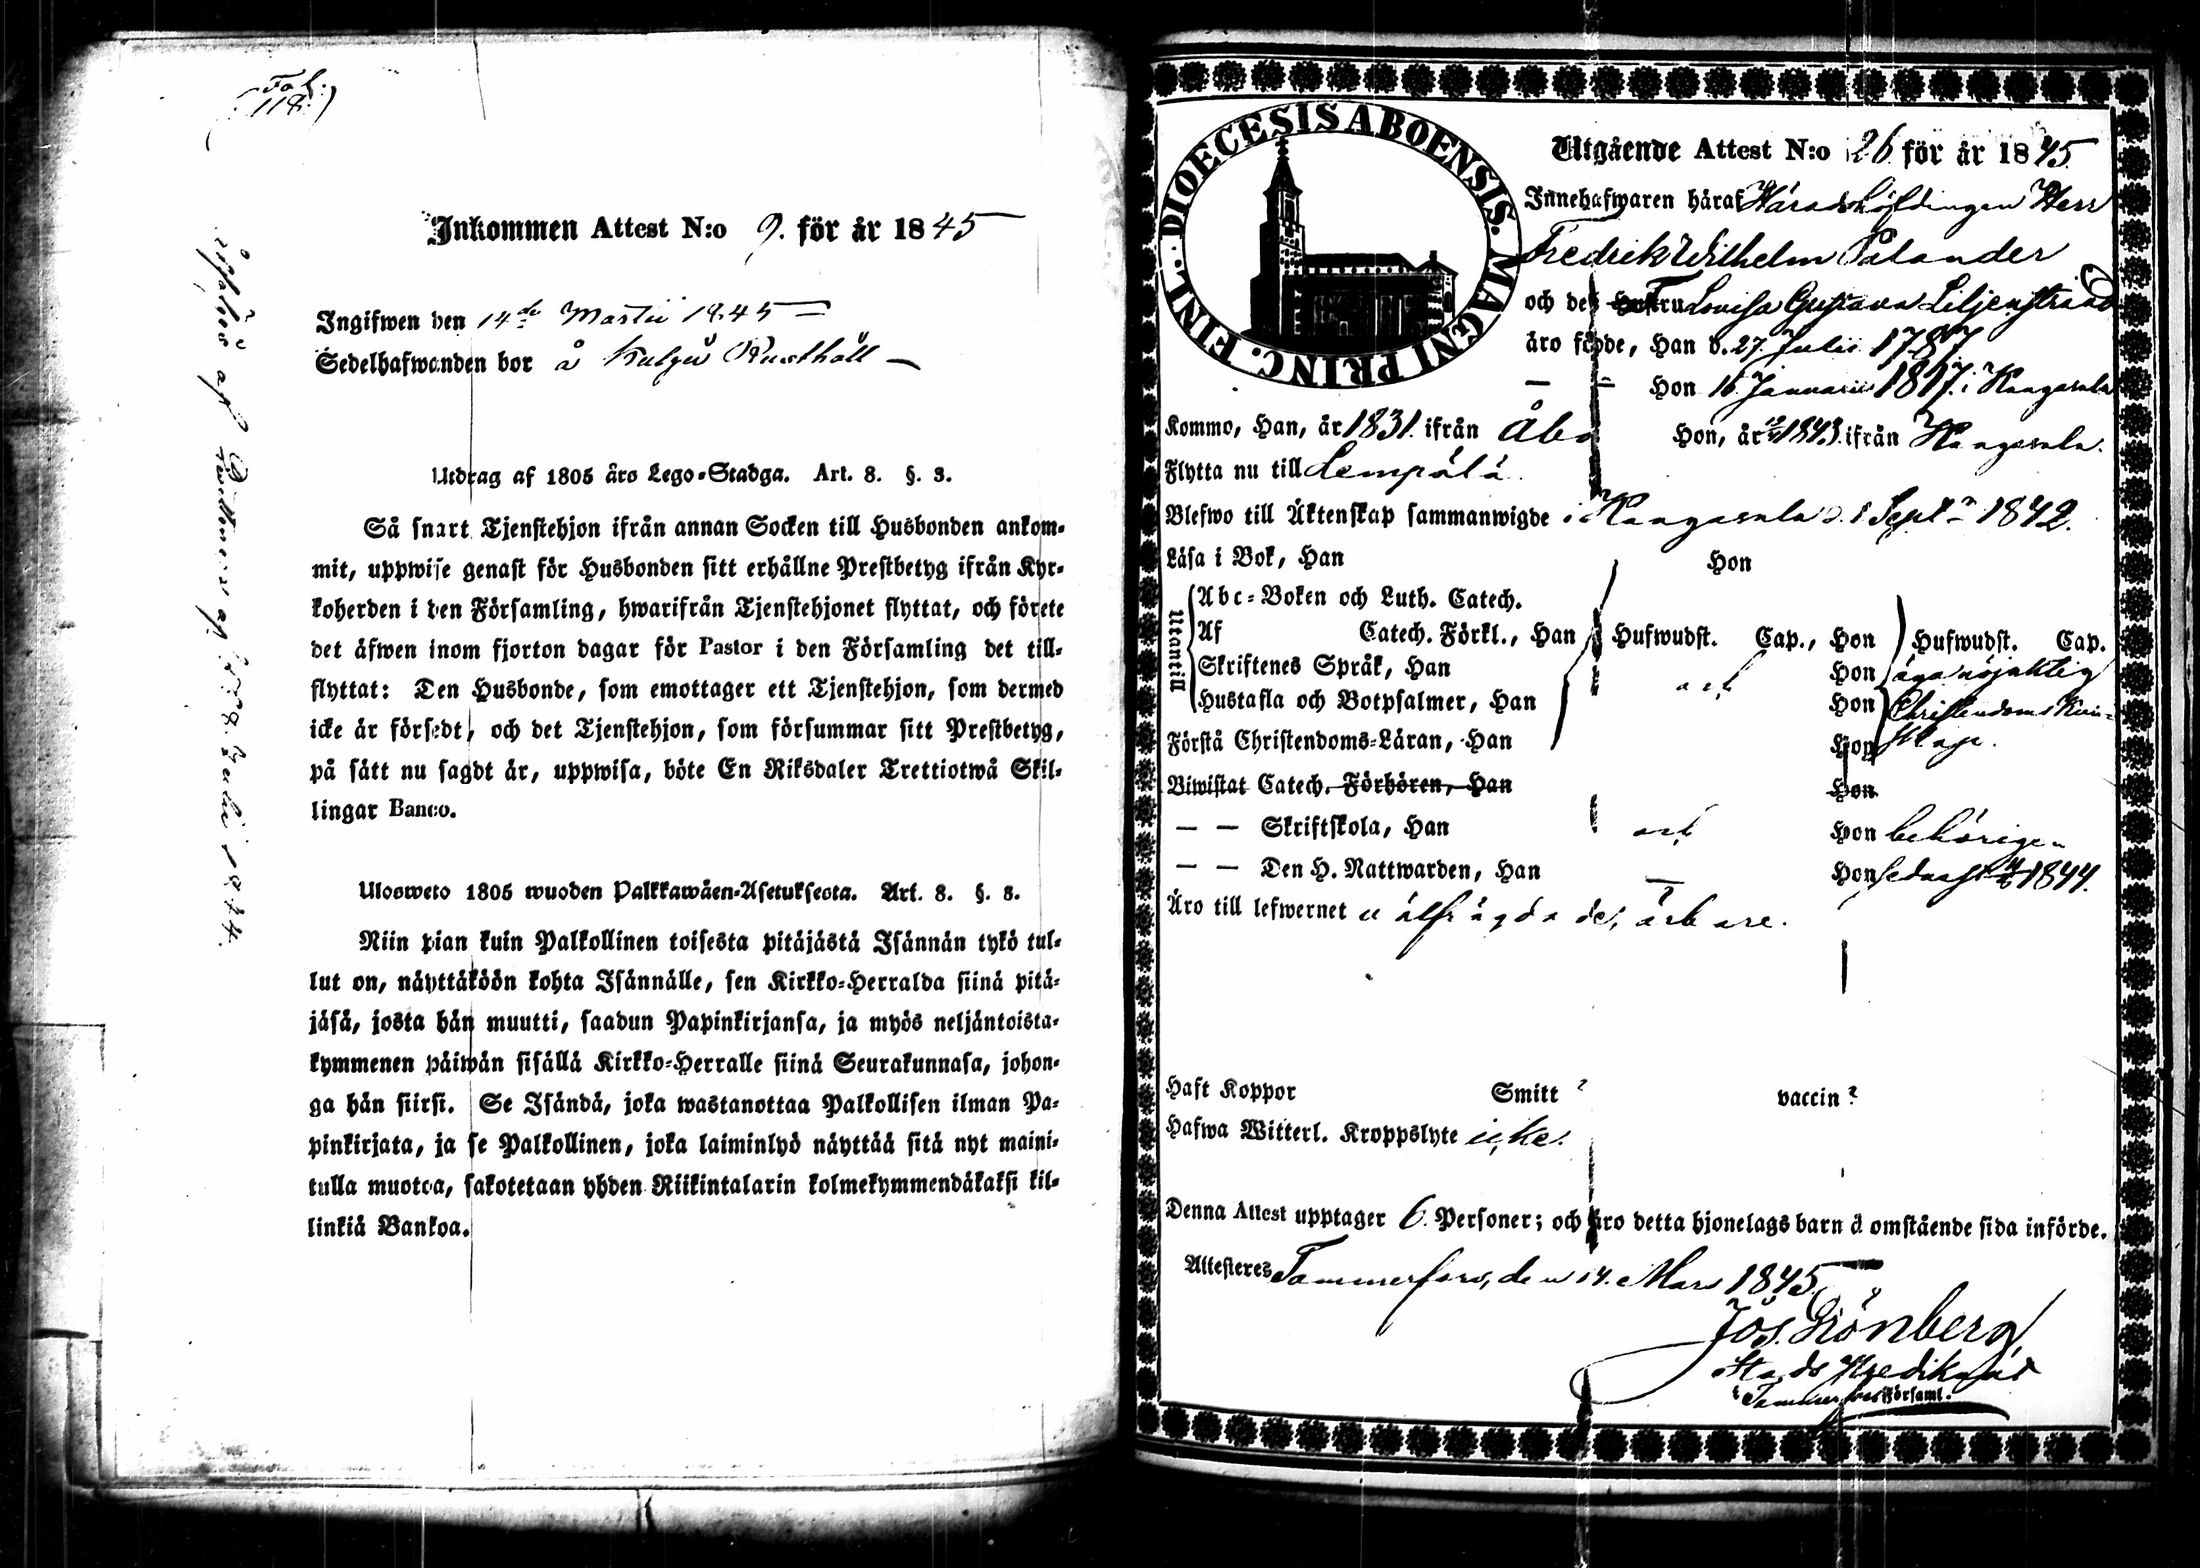 Fol:
(118.)
Inkommen Attest N:o 9. för år 1845
Ingifwen den 14de Martii 1845
Sedelhafwanden bor å Kulju Rusthåll
Utdrag af 1805 års Lego-Stadga. Art. 8. §. 3.
Så snart Tjenstehjon ifrån annan Socken till Husbonden ankom-
mit, uppwise genast för Husbonden sitt erhållne Prestbetyg ifrån Kyr-
koherden i den Församling, hwarifrån Tjenstehjonet flyttat, och förete
det äfwen inom fjorton dagar för Pastor i den Församling det till-
flyttat: Den Husbonde, som emottager ett Tjenstehjon, som dermed
icke är försedt, och det Tjenstehjon, som försummar sitt Prestbetyg,
på sätt nu sagdt är, uppwisa, böte En Riksdaler Trettiotwå Skil-
lingar Banco.
Ulosweto 1805 wuoden Palkkawäen-Asetuksesta. Art. 8. §. 3.
Niin pian kuin Palkollinen toisesta pitäjästä Isännän tykö tul-
lut on, näyttäköön kohta Isännälle, sen Kirkko-Herralda siinä pitä-
jäsä, josta hän muutti, saadun Papinkirjansa, ja myös neljäntoista-
kymmenen päiwän sisällä Kirkko-Herralle siinä Seurakunnasa, johon-
ga hän siirsi. Se Isändä, joka wastanottaa Palkollisen ilman Pa-
pinkirjata, ja se Palkollinen, joka laiminlyö näyttää sitä nyt maini-
tulla muotoa, sakotetaan yhden Riikintalarin kolmekymmendäkaksi kil-
linkiä Bankoa.
DIOECESIS ABOENSIS. MAGNI PRINC. FINL.
Utgående Attest N:o 26 för år 1845
Innehafwaren häraf Häradshöfdingen Herr
Fredrik Wilhelm Palander
och des Hustru Fru Lovisa Gustava Liljenstrand
äro födde, Han d. 27 Julii 1787
— — Hon 16 Januarii 1817. i Kangasala
Kommo, Han, år 1831. ifrån Åbo Hon, år 1843 ifrån Kangasala.
Flytta nu till Lempälä
Blefwo till Äktenskap sammanwigde i Kangasala d. 1 Sept. 1842.
Läsa i Bok, Han Hon
Utantill
Abc-Boken och Luth. Catech.
Af Catech. Förkl., Han Hufwudst. Cap., Hon Hufwudst. Cap.
Skriftenes Språk, Han Hon äga nöjaktig
Hustafla och Botpsalmer, Han och Hon Christendoms Kun-
Förstå Christendoms-Läran, Han Hon skap.
Biwistat Catech. Förhören, Han Hon
— — Skriftskola, Han och Hon behörigen
— — Den H. Nattwarden, Han — Hon sednast 1844.
Äro till lefwernet wälfrägdade, ärbare.
Haft Koppor Smitt ? vaccin ?
Hafwa Witterl. Kroppslyte icke.
Denna Attest upptager 6. Personer; och äro detta hjonelags barn å omstående sida införde.
Attesteres Tammerfors, den 14. Mars 1845.
Jos. Grönberg
Stads Predikant
i Tammerfors Församl.